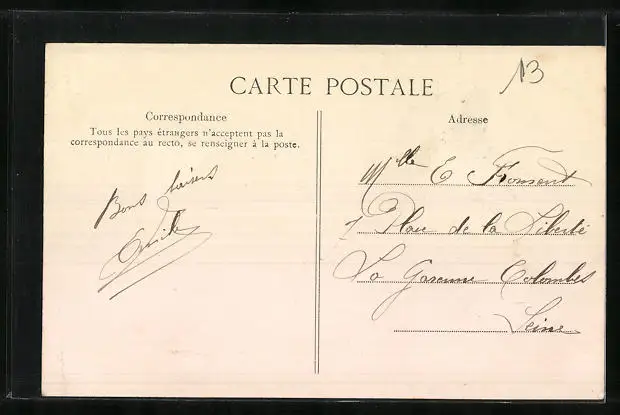 13
CARTE POSTALE
Correspondance
Tous les pays étrangers n'acceptent pas la
correspondance au recto, se renseigner à la poste.
Bons baisers
Emile
Adresse
Mlle E Fromont
1 Place de la Liberté
La Garenne Colombes
Seine